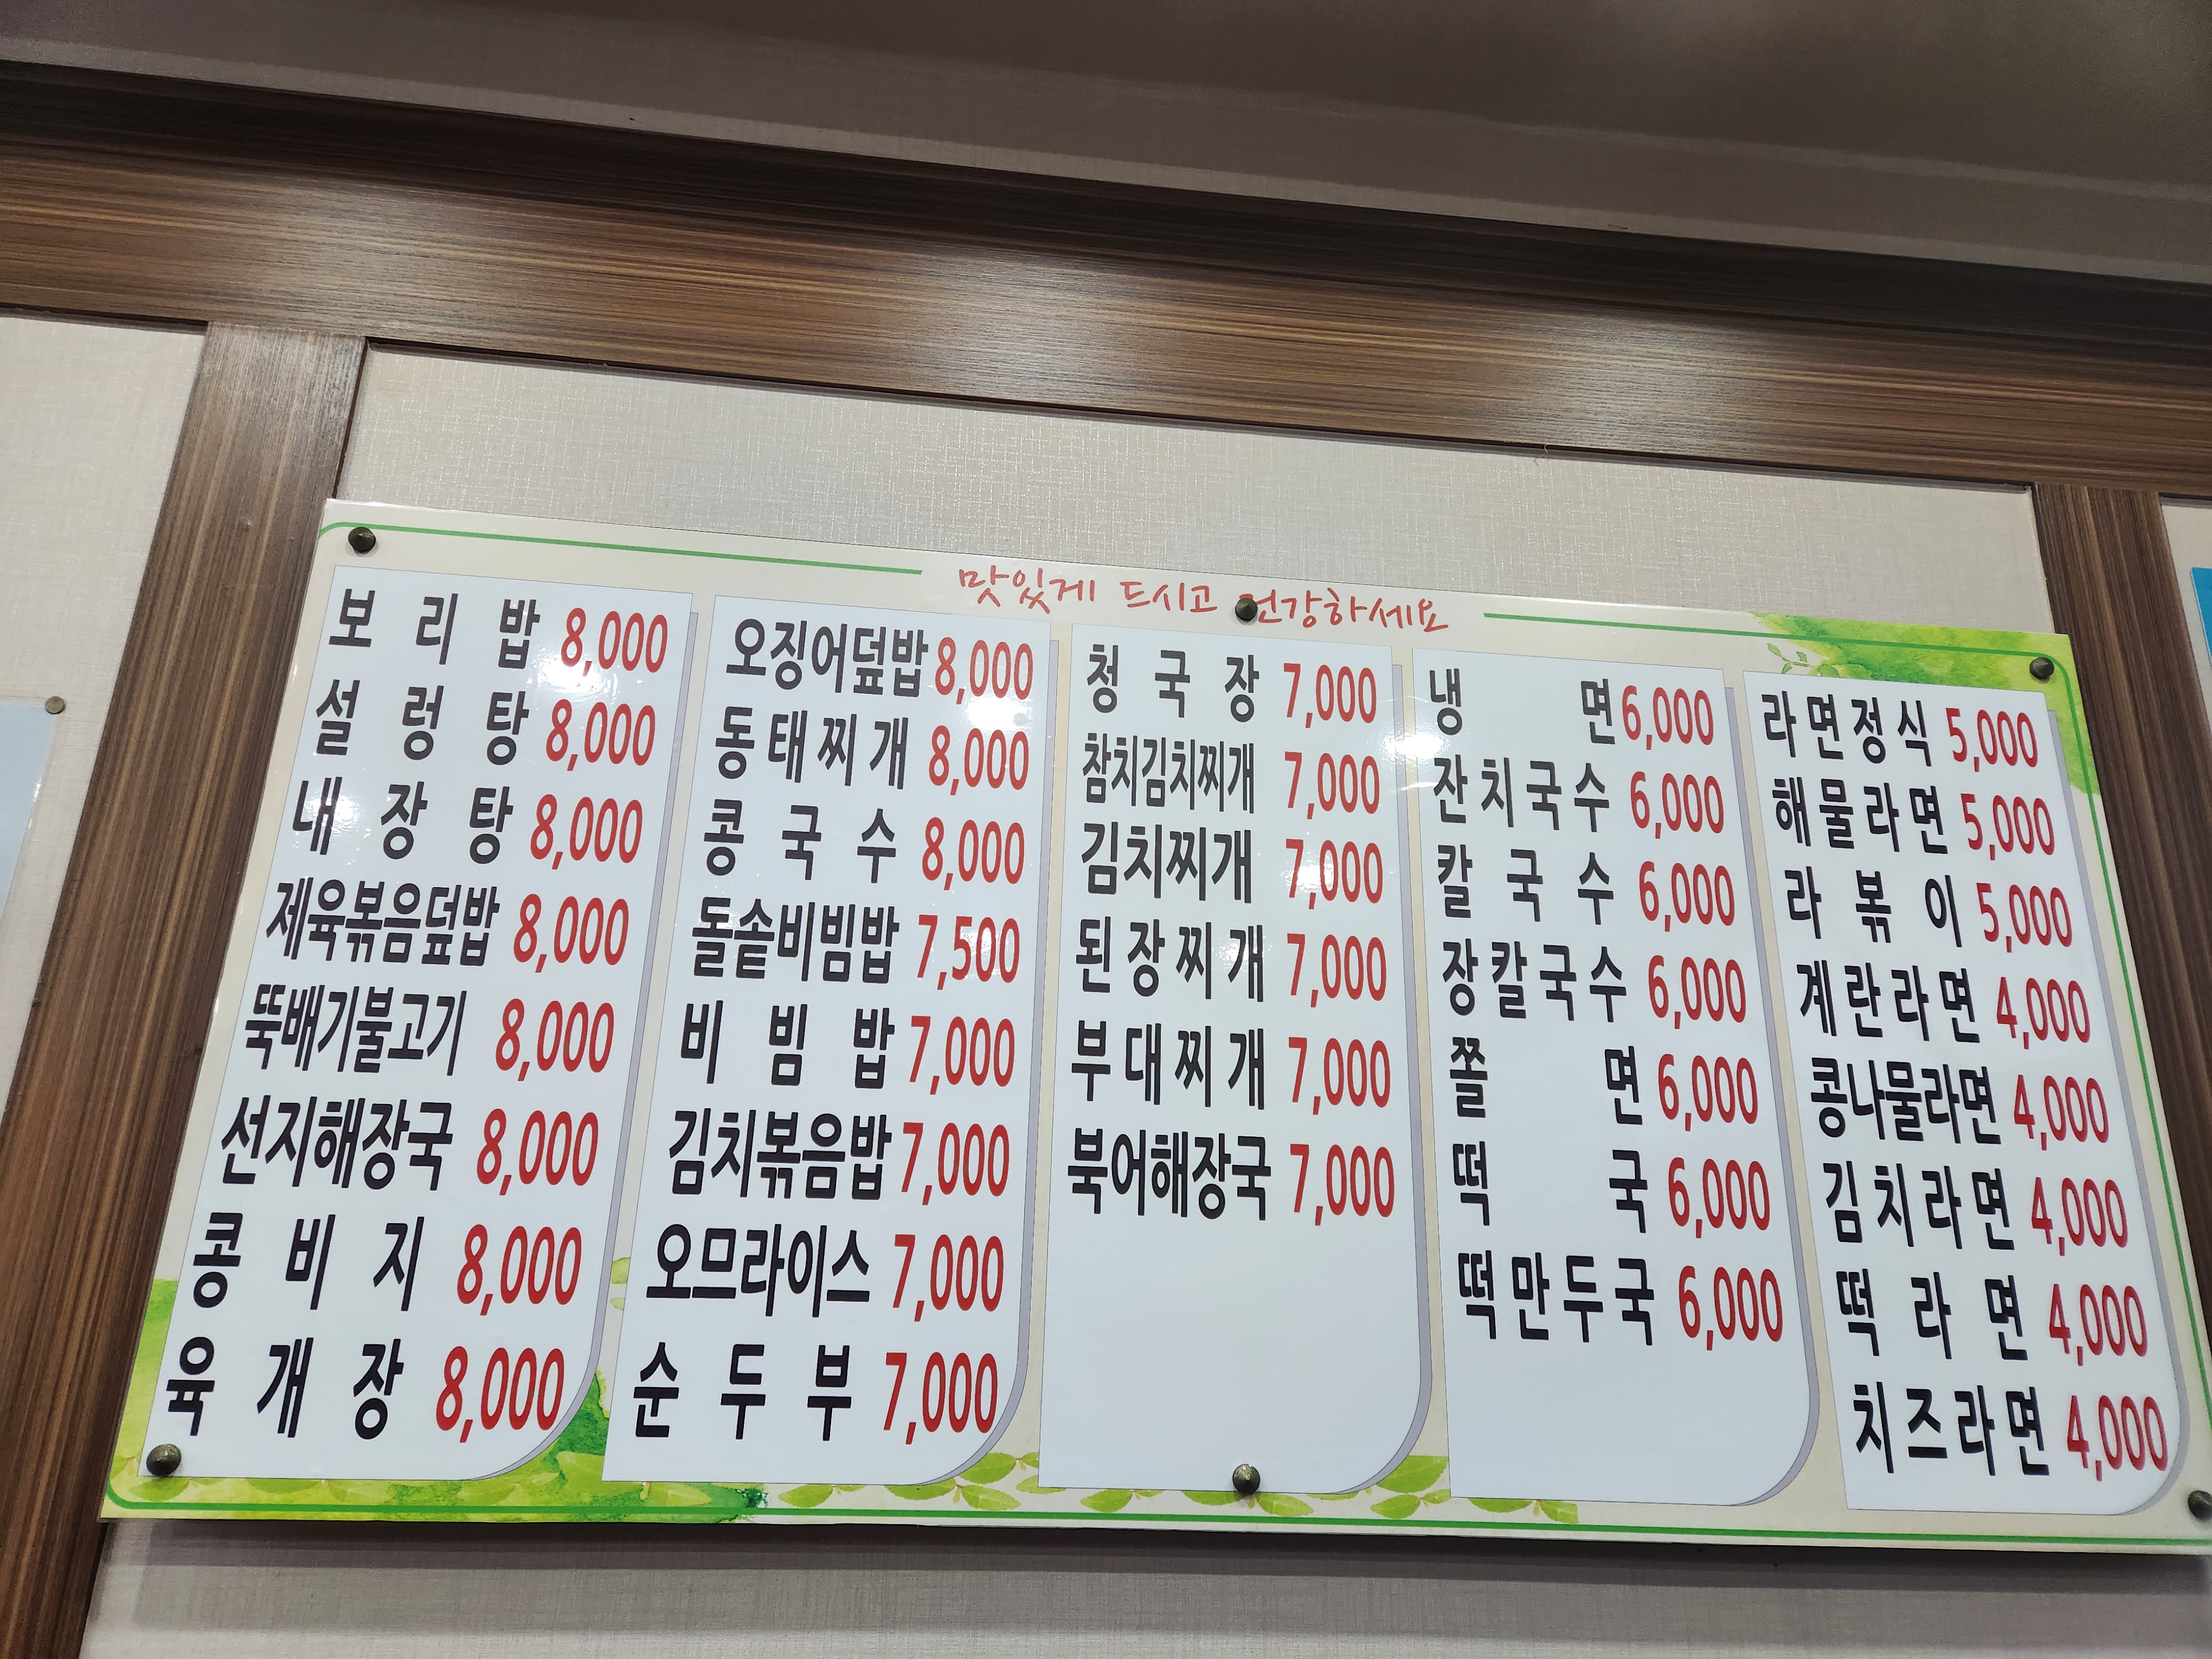 맛있게 드시고 건강하세요
보리밥 8,000
설렁탕 8,000
내장탕 8,000
제육볶음덮밥 8,000
뚝배기불고기 8,000
선지해장국 8,000
콩비지 8,000
육개장 8,000
오징어덮밥 8,000
동태찌개 8,000
콩국수 8,000
돌솥비빔밥 7,500
비빔밥 7,000
김치볶음밥 7,000
오므라이스 7,000
순두부 7,000
청국장 7,000
참치김치찌개 7,000
김치찌개 7,000
된장찌개 7,000
부대찌개 7,000
북어해장국 7,000
냉면 6,000
잔치국수 6,000
칼국수 6,000
장칼국수 6,000
쫄면 6,000
떡국 6,000
떡만두국 6,000
라면정식 5,000
해물라면 5,000
라볶이 5,000
계란라면 4,000
콩나물라면 4,000
김치라면 4,000
떡라면 4,000
치즈라면 4,000